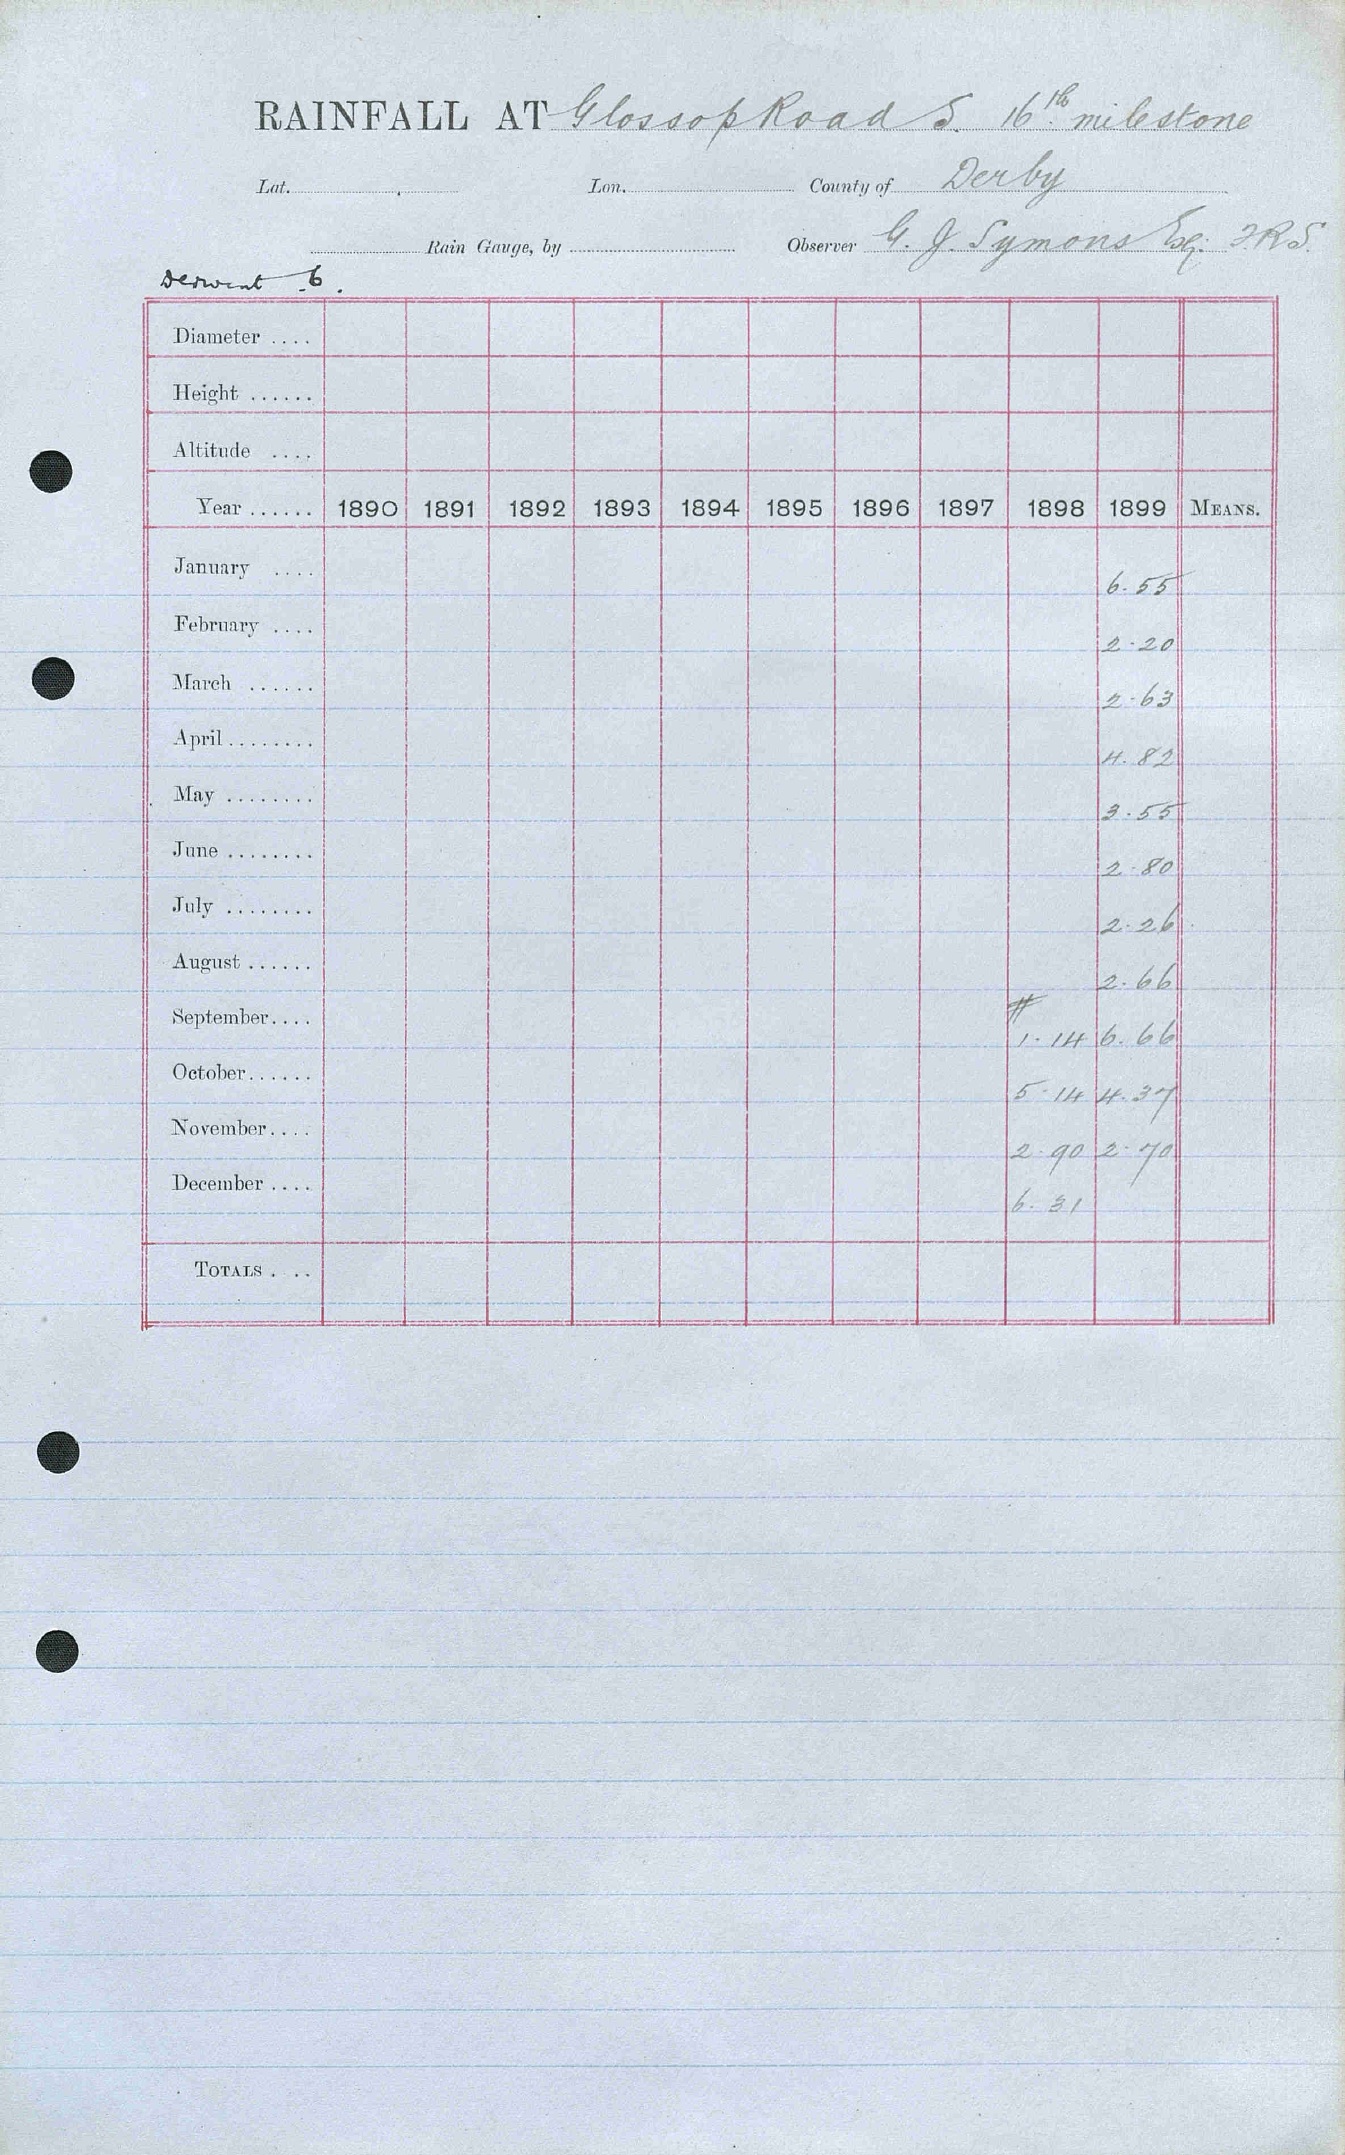 RAINFALL AT Glossop Road S. 16th milestone
Lat. . Lon. County of Derby
Rain Gauge, by Observer G. J. Symons Esq: F.R.S.
Derwent 6.
Diameter ....
Height ......
Altitude ....
Year ...... 1890 1891 1892 1893 1894 1895 1896 1897 1898 1899 MEANS.
January .... 6.55
February .... 2.20
March ...... 2.63
April ........ 4.82
May ........ 3.55
June ........ 2.80
July ........ 2.26
August ...... 2.66
September.... # 1.14 6.66
October...... 5.14 4.37
November.... 2.90 2.70
December .... 6.31
TOTALS . ..